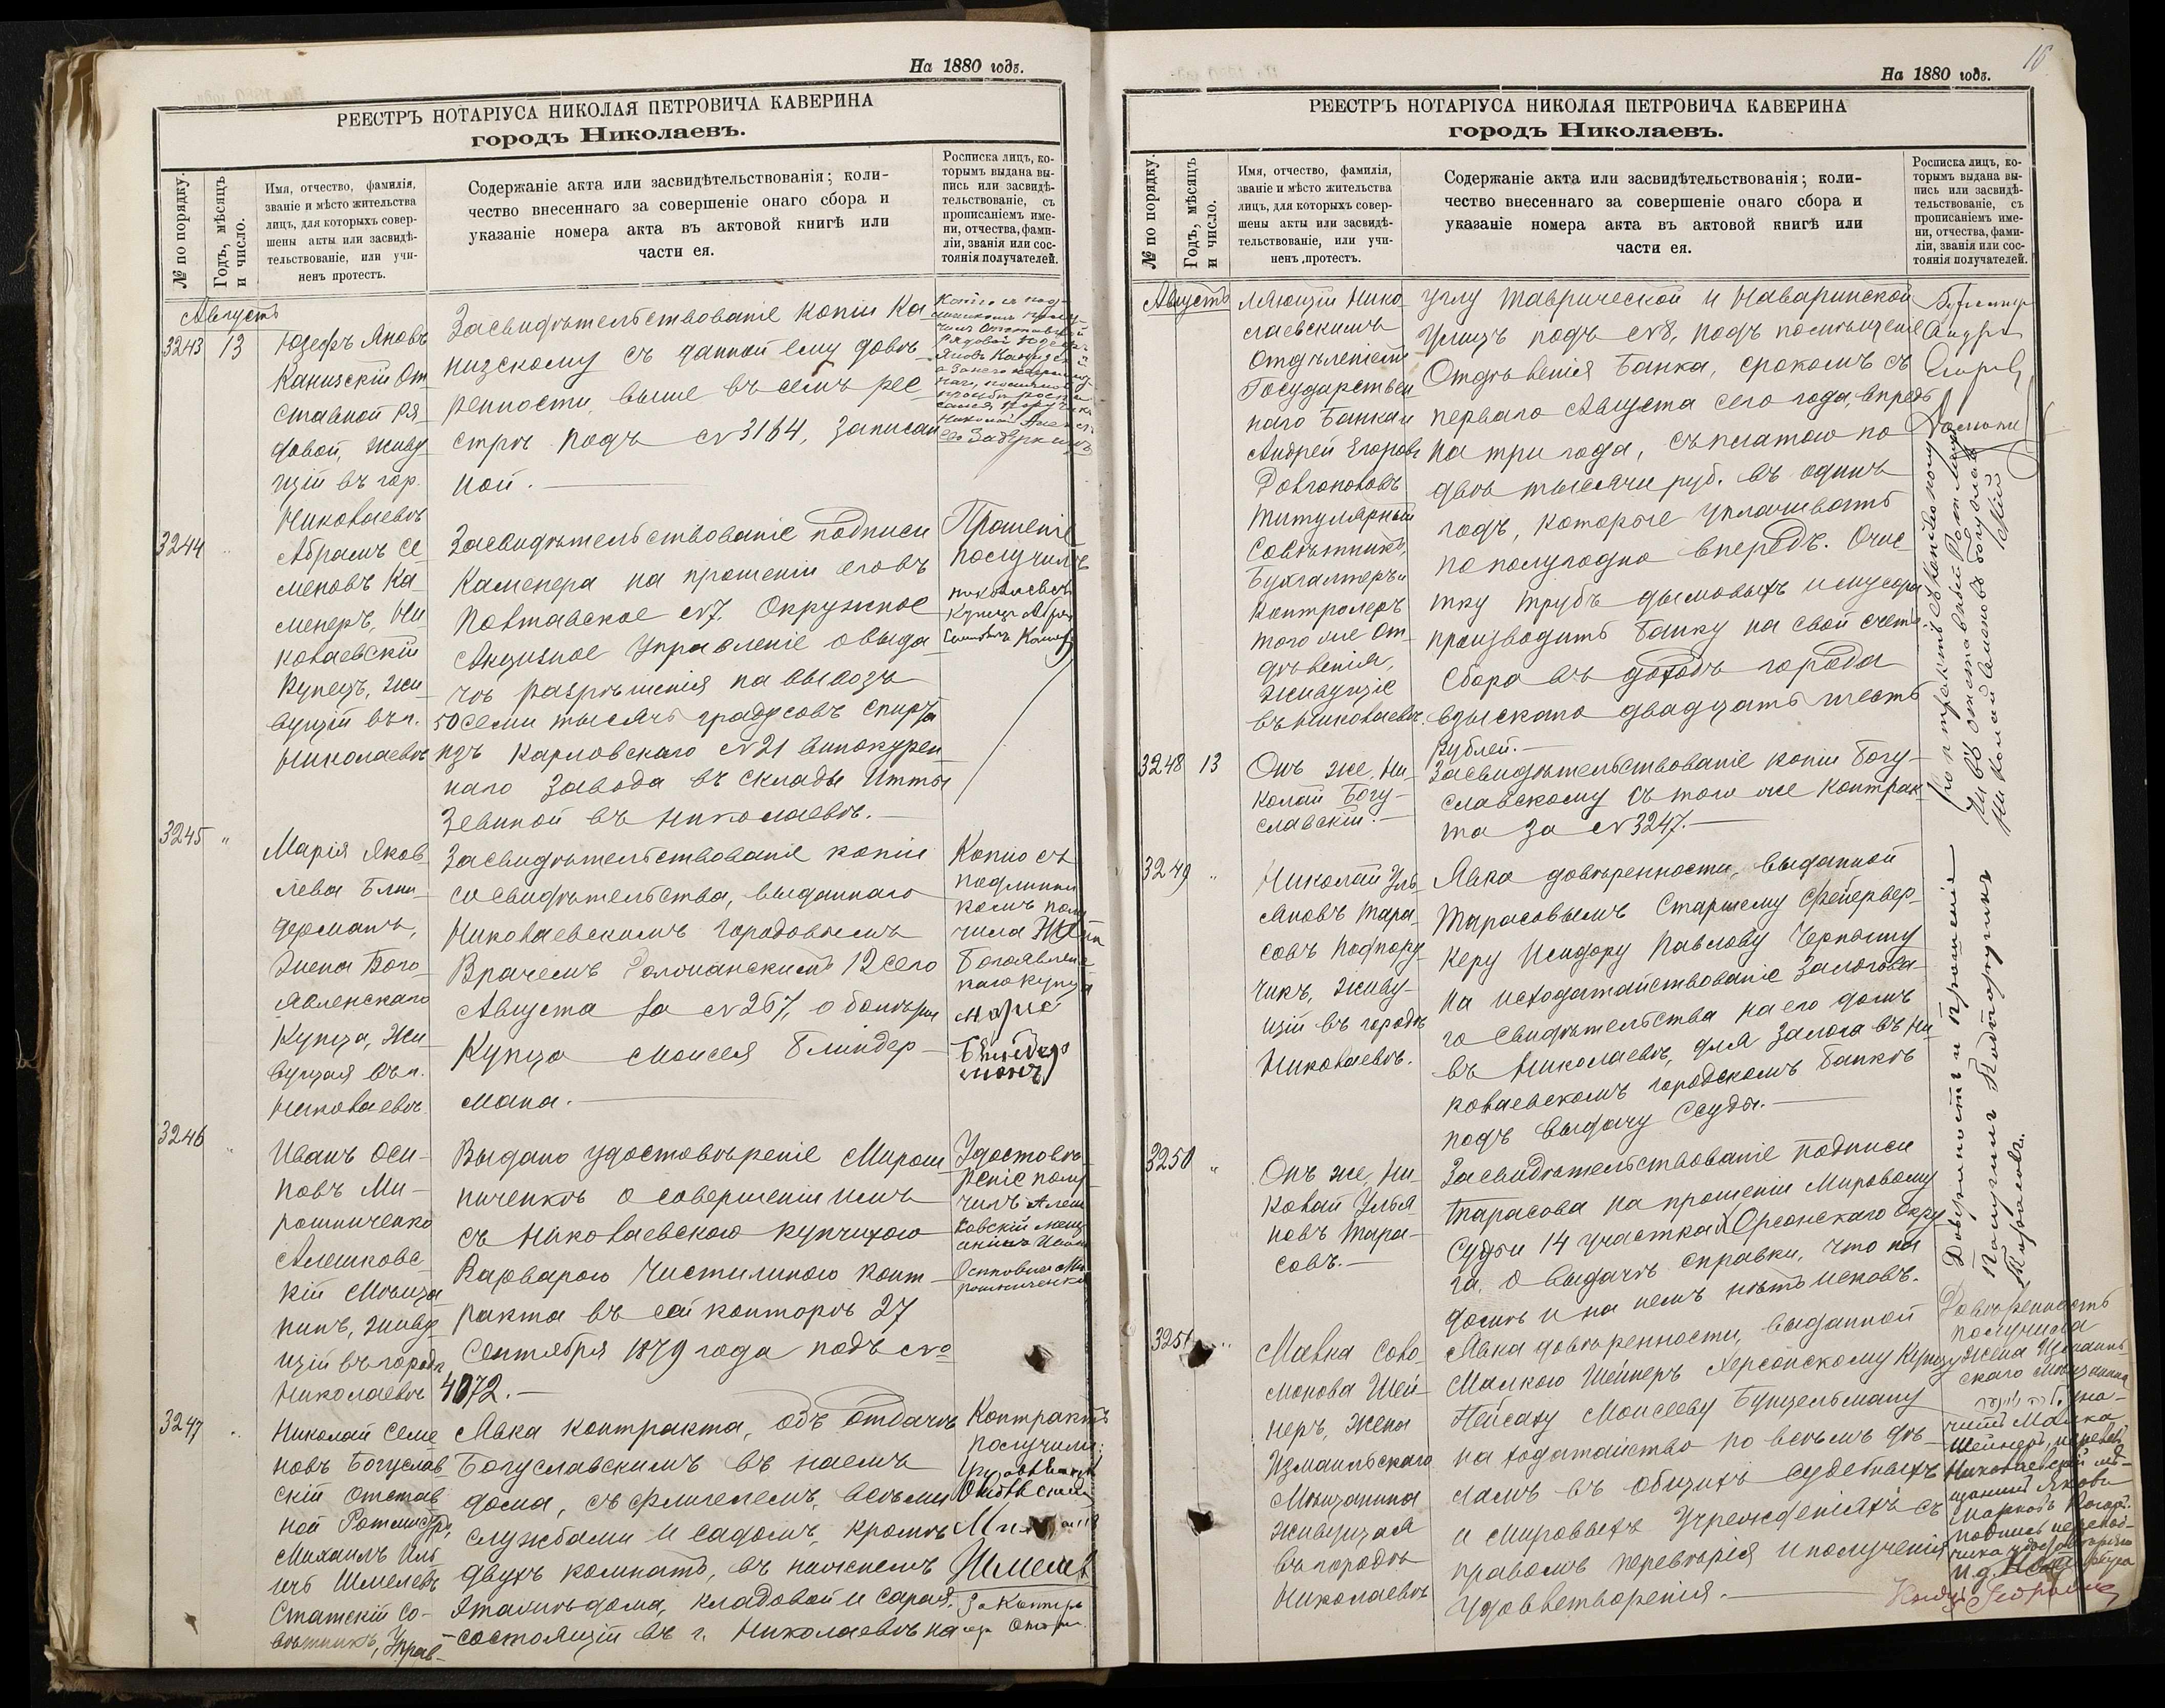 На 1880 годъ.
РЕЕСТРЪ НОТАРІУСА НИКОЛАЯ ПЕТРОВИЧА КАВЕРИНА
городъ Николаевъ.
№ по порядку.
Годъ, мѣсяцъ
и число.
Имя, отчество, фамилія,
званіе и мѣсто жительства
лицъ, для которыхъ совер-
шены акты или засвидѣ-
тельствованіе, или учи-
ненъ протестъ.
Содержаніе акта или засвидѣтельствованія; коли-
чество внесеннаго за совершеніе онаго сбора и
указаніе номера акта въ актовой книгѣ или
части ея.
Росписка лицъ, ко-
торымъ выдана вы-
пись или засвидѣ-
тельствованіе, съ
прописаніемъ име-
ни, отчества, фами-
ліи, званія или сос-
тоянія получателей.
Августъ
3243 13
Юзефъ Яновъ
Канизскій От
ставной Ря-
довой, живу
щій въ гор.
Николаевѣ
Засвидѣтельствованіе копіи Ка
низскому съ данной ему довѣ
ренности, выше въ семъ рее
стрѣ подъ №3164, записан
ной.
3244
Абрамъ Се
меновъ Ка
менеръ, Ни
колаевскій
Купецъ, жи
вущій въ г.
Николаевѣ
Засвидѣтельствованіе подписи
Каменера на прошеніи его въ
Полтавское №7. Окружное
Акцизное Управленіе о выда
чѣ разрѣшенія на вывозъ
50 семи тысячъ градусовъ спирта
изъ Карловскаго №21 винокурен
наго завода въ склады Итты
Зевиной въ Николаевѣ.
Прошеніе
получилъ
Николаевск
Купецъ
3245 "
Марія Яков
лева Блин
дерманъ,
Жена Бого-
явленскаго
Купца, жи
вущая въ г.
Николаевѣ
Засвидѣтельствованіе копіи
со свидѣтельства, выданнаго
Николаевскимъ Городовымъ
Врачемъ 12 сего
Августа за №267, о болѣзни
Купца Моисея Блиндер-
мана.
Копію съ
подлинни
комъ полу
чила
Богоявленс
каго купца
Марія
Блиндер
манъ
3246 "
Иванъ Оси-
повъ Ми-
рошниченко
Алешковс
кій Мѣща
нинъ, живу
щій въ городѣ
Николаевѣ
Выдано удостовѣреніе Мирош
ниченкѣ о совершеніи имъ
съ Николаевскою купчихою
Варварою Чистилиною конт-
ракта въ сей конторѣ 27
Сентября 1879 года подъ №
4072.
Удостовѣ-
реніе полу
чилъ Алеш
ковскій мещ
анинъ Иван
Осиповичъ Ми
рошниченко
3247 "
Николай Семе
новъ Богуслав
скій Отстав
ной Ротмистръ,
Михаилъ Иль
ичъ Шмелевъ
Статскій Со-
вѣтникъ, Управ-
Явка контракта, объ отдачѣ
Богуславскимъ въ наемъ
дома, съ флигелемъ, всѣми
службами и садомъ, кромѣ
двухъ комнатъ, въ нижнемъ
этажѣ дома, кладовой и сарая,
состоящій въ г. Николаевѣ на
Контрактъ
получили:
Шмелев
На 1880 годъ.
16
РЕЕСТРЪ НОТАРІУСА НИКОЛАЯ ПЕТРОВИЧА КАВЕРИНА
городъ Николаевъ.
№ по порядку.
Годъ, мѣсяцъ
и число.
Имя, отчество, фамилія,
званіе и мѣсто жительства
лицъ, для которыхъ совер-
шены акты или засвидѣ-
тельствованіе, или учи-
ненъ протестъ.
Содержаніе акта или засвидѣтельствованія; коли-
чество внесеннаго за совершеніе онаго сбора и
указаніе номера акта въ актовой книгѣ или
части ея.
Росписка лицъ, ко-
торымъ выдана вы-
пись или засвидѣ-
тельствованіе, съ
прописаніемъ име-
ни, отчества, фами-
ліи, званія или сос-
тоянія получателей.
Августъ
ляющій Нико
лаевскимъ
Отдѣленіемъ
Государствен
наго Банка и
Андрей Егоровъ
Довгополовъ
Титулярный
Совѣтникъ,
Бухгалтеръ и
Контролеръ
того же От-
дѣленія,
Живущіе
въ Николаевѣ.
углу Таврической и Наваринской
улицъ подъ №8, подъ помѣщеніе
Отдѣленія Банка, срокомъ съ
перваго Августа сего года, впредь
на три года, съ платою по
двѣ тысячи руб. въ одинъ
годъ, которые уплачивать
по полугодно впередъ. Очис
тку трубъ дымовыхъ и мусора
производить Банку на свой счетъ
Сбора въ доходъ города
взыскано двадцать шесть
рублей.
Андрей
Егоров
3248 13
Онъ же, Ни-
колай Богу-
славскій.
Засвидѣтельствованіе копіи Богу-
славскому съ того же контрак-
та за №3247.
Контрактъ съ копіею получ
илъ отставной Ротмистръ
Николай Семеновъ Богуслав
скій
3249 "
Николай Уль
яновъ Тара-
совъ Подпору-
чикъ, живу-
щій въ городѣ
Николаевѣ.
Явка довѣренности, выданной
Тарасовымъ Старшему Фейервер-
керу Исидору Павлову Черпашу
на исходатайствованіе залогова-
го свидѣтельства на его домъ
въ Николаевѣ, для залога въ Ни-
колаевскомъ городскомъ Банкѣ
подъ выдачу ссуды.
3250 "
Онъ же, Ни-
колай Улья
новъ Тара-
совъ.
Засвидѣтельствованіе подписи
Тарасова на прошеніи Мировому
Судьи 14 участка Херсонскаго Окру
га, о выдачѣ справки, что на
домѣ и на немъ нѣтъ исковъ.
Довѣренность и прошеніе
Получилъ Подпоручикъ
Тарасовъ.
3251 "
Малка Соло-
монова Шей-
неръ, жена
Измаильскаго
Мѣщанина
живущая
въ городѣ
Николаевѣ
Явка довѣренности, выданной
Малкою Шейнеръ Херсонскому Купцу
Пейсаху Моисееву Бунцельману
на ходатайство по всѣмъ дѣ-
ламъ въ общихъ судебныхъ
и мировыхъ учрежденіяхъ съ
правомъ перевѣрія и полученія
удовлетворенія.
Довѣренность
получила
Жена Измаиль-
скаго Мѣщанина
зна-
читъ Малка
Шейнеръ, перевелъ
Николаевскій мѣ-
щанинъ Яковъ
Марковъ
подпись перевод-
чика удостовѣряю
И.д. Нотаріуса